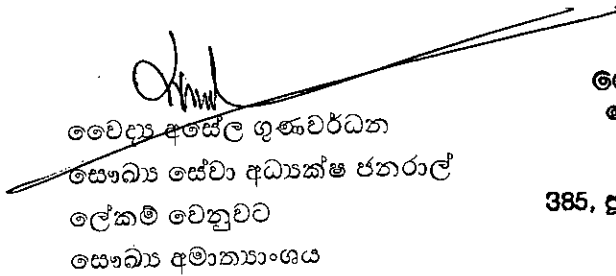 වෛද්‍ය අසේල ගුණවර්ධන
සෞඛ්‍ය සේවා අධ්‍යක්ෂ ජනරාල්
ලේකම් වෙනුවට
සෞඛ්‍ය අමාත්‍යාංශය
385,